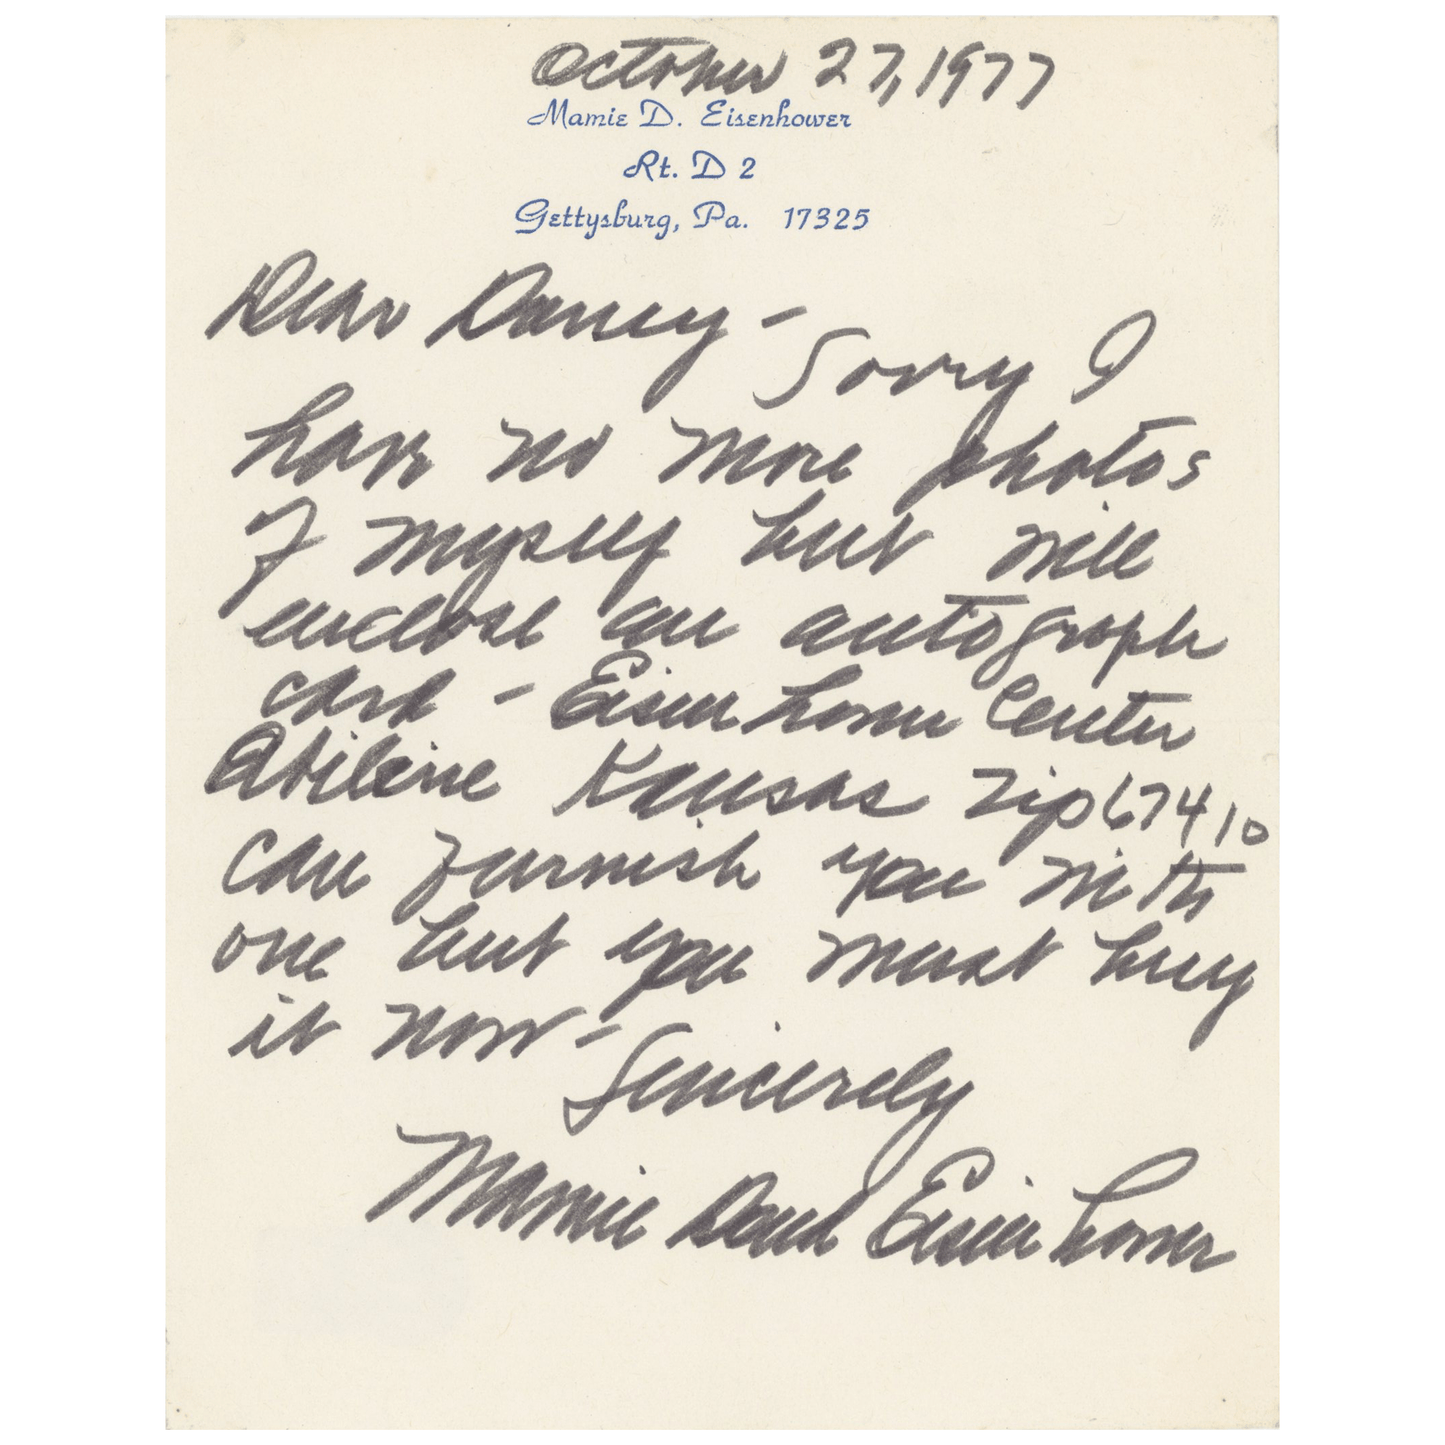 October 27, 1977
Mamie D. Eisenhower
Rt. D 2
Gettysburg, Pa. 17325
Dear Danny -
Sorry I
have no more photos
of myself but will
enclose an autograph
card - Eisenhower Center
Abilene Kansas Zip 67410
can furnish you with
one but you must buy
it now -
Sincerely
Mamie Doud Eisenhower